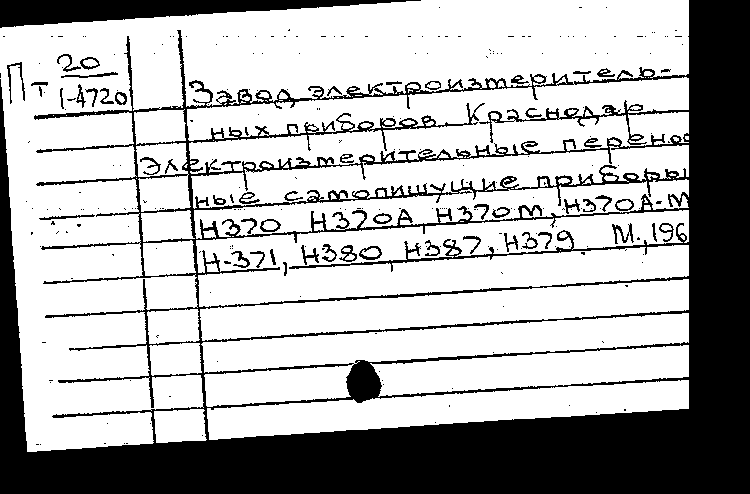 Пт 20
1-4720
Завод электроизмеритель-
ных приборов. Краснодар.
Электроизмерительные перенос
ные самопишущие приборы
Н370, Н370А, Н370М, Н370А-М
Н-371, Н380, Н387, Н379. М., 196